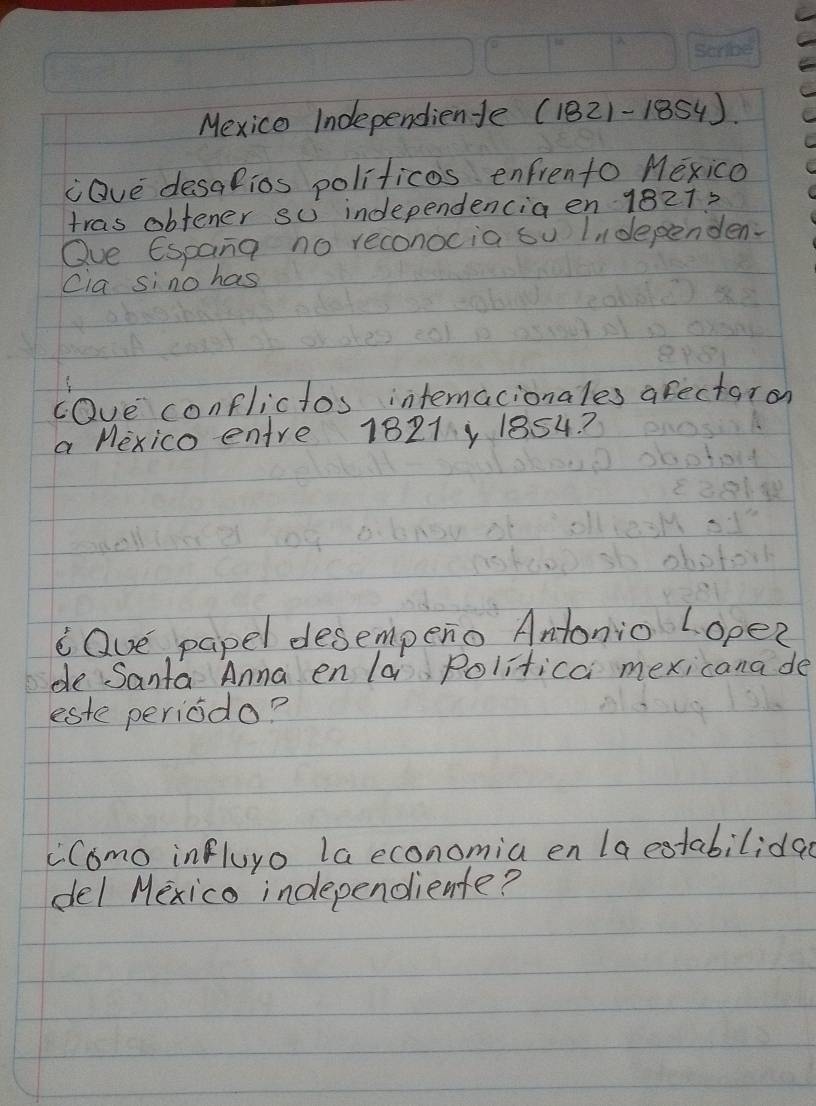 Scribe
Mexico Independiente (1821-1854).
¿Qué desafios políticos enfrento México
tras obtener su independencia en 1821?
Que España no reconocia su Independen-
cia sino has
¿Qué conflictos internacionales afectaron
a México entre 1821 y 1854?
¿Qué papel desempeño Antonio Lopez
de Santa Anna en la Política mexicana de
este periódo?
¿Como influyo la economia en la estabilidad
del México independiente?